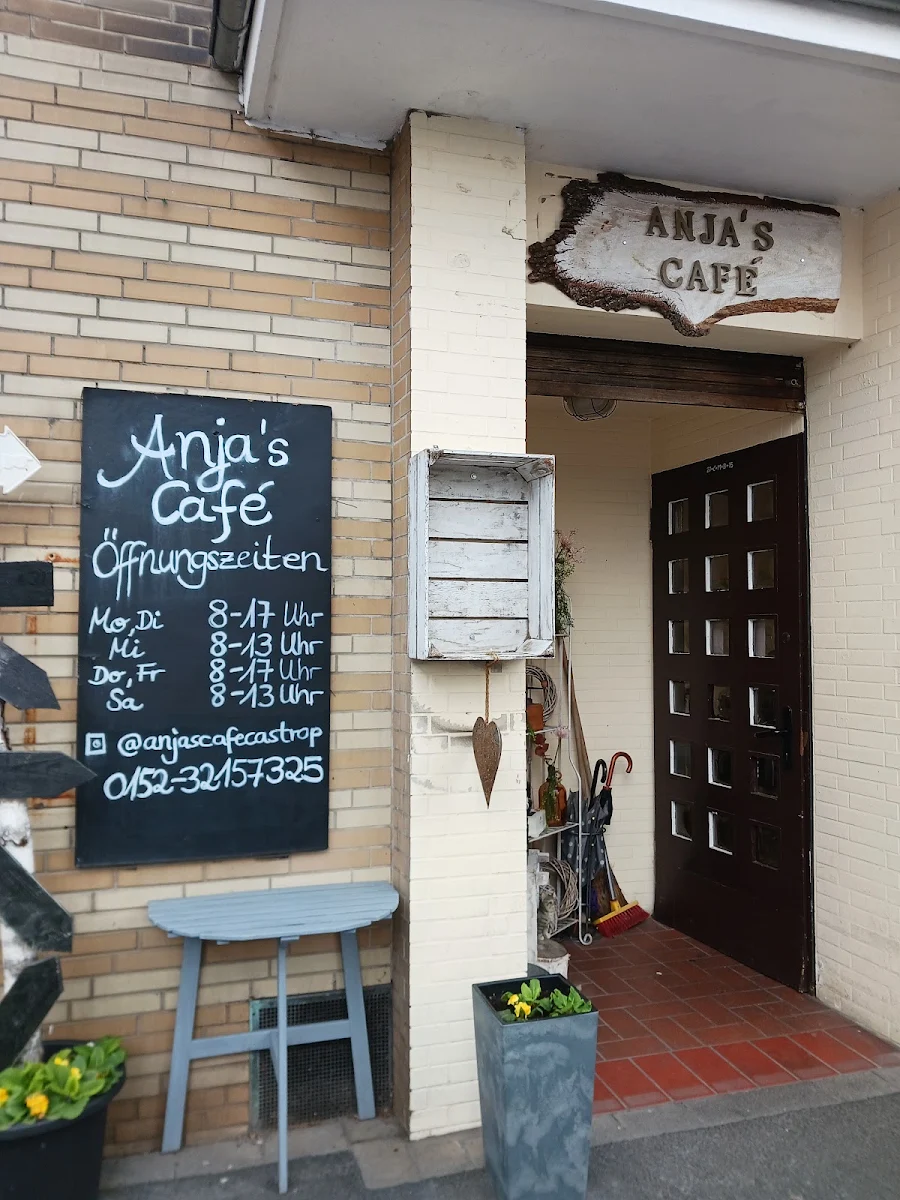 ANJA'S
CAFÉ
Anja's
Café
Öffnungszeiten
Mo,Di 8-17 Uhr
Mi 8-13 Uhr
Do, Fr 8-17 Uhr
Sa 8-13 Uhr
@anjascafecastrop
0152-32157325